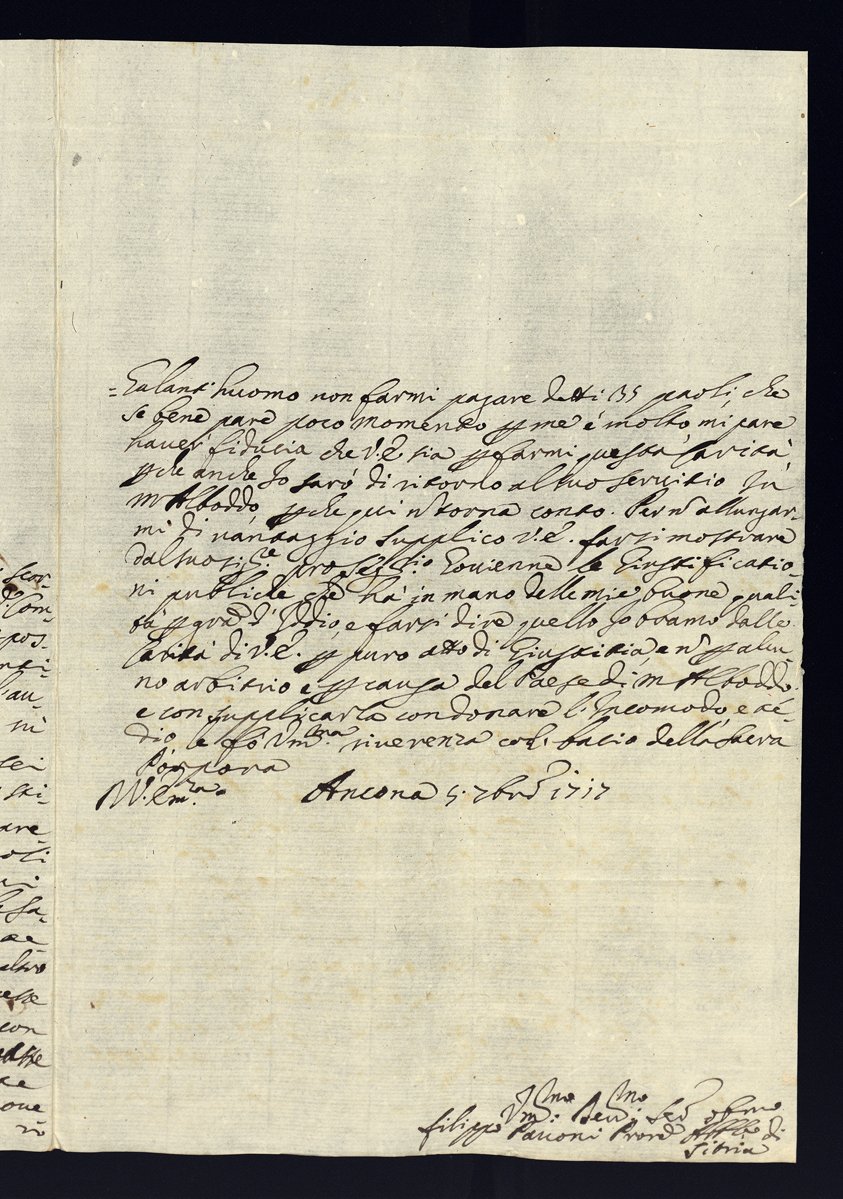 =Galant'huomo non farmi pagare detti 35 paoli, che
se bene pare poco momento p me é molto mi pare
haver fiducia che V.E. sia p farmi questa Carità,
p che anche Io saró di ritorno al suo servitio In
M Alboddo, p che qui n torna conto. Per n allungar-
mi di vantaggio supplico V.E. farsi mostrare
dal suo le Giustificatio-
ni publiche che há in mano delle mie buone quali-
tá p gra d'Iddio, e farsi dire quello Io bramo dalla
Carità di V.E. p puro atto di Giustitia, e n p alcu-
no arbitrio e p causa del Paese di M Alboddo.
e con supplicarla condonare l'Incomodo, e té-
dio, e fó Vm.ma riverenza col bacio della Sacra
Porpora
Ancona 5. 7bre 1717
Vm: Dev: Ser
filippo Pavoni
scor-
Com-
pos-
au-
sei
are-
altro
con
oue